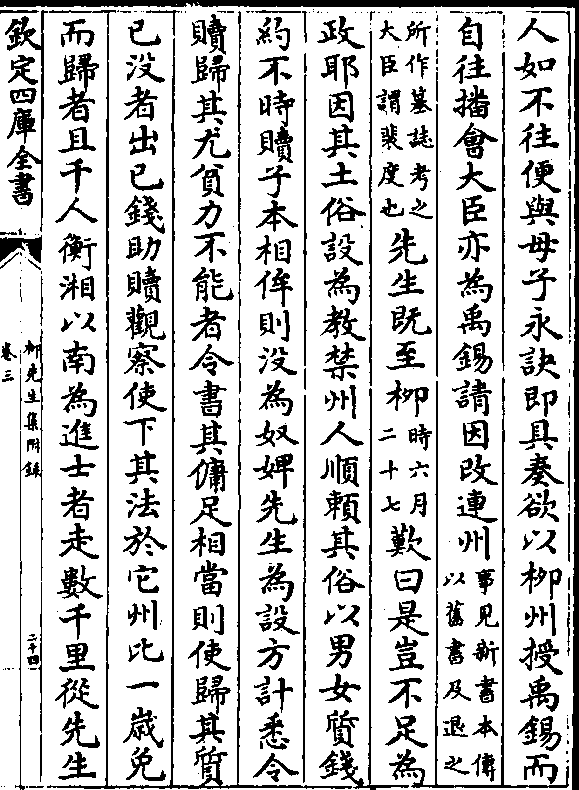 人如不往便與母子永訣即具奏欲以柳州授禹錫而
自往播會大臣亦為禹錫請因改連州事見新書本傳以舊書及退之
所作墓誌考之大臣謂裴度也先生既至柳時六月二十七歎曰是豈不足為
政耶因其土俗設為教禁州人順賴其俗以男女質錢
約不時贖子本相侔則没為奴婢先生為設方計悉令
贖歸其尤貧力不能者令書其傭足相當則使歸其質
已没者出已錢助贖觀察使下其法於它州比一歲免
而歸者且千人衡湘以南為進士者走數千里從先生
欽定四庫全書
柳先生集附録
卷三
二十四